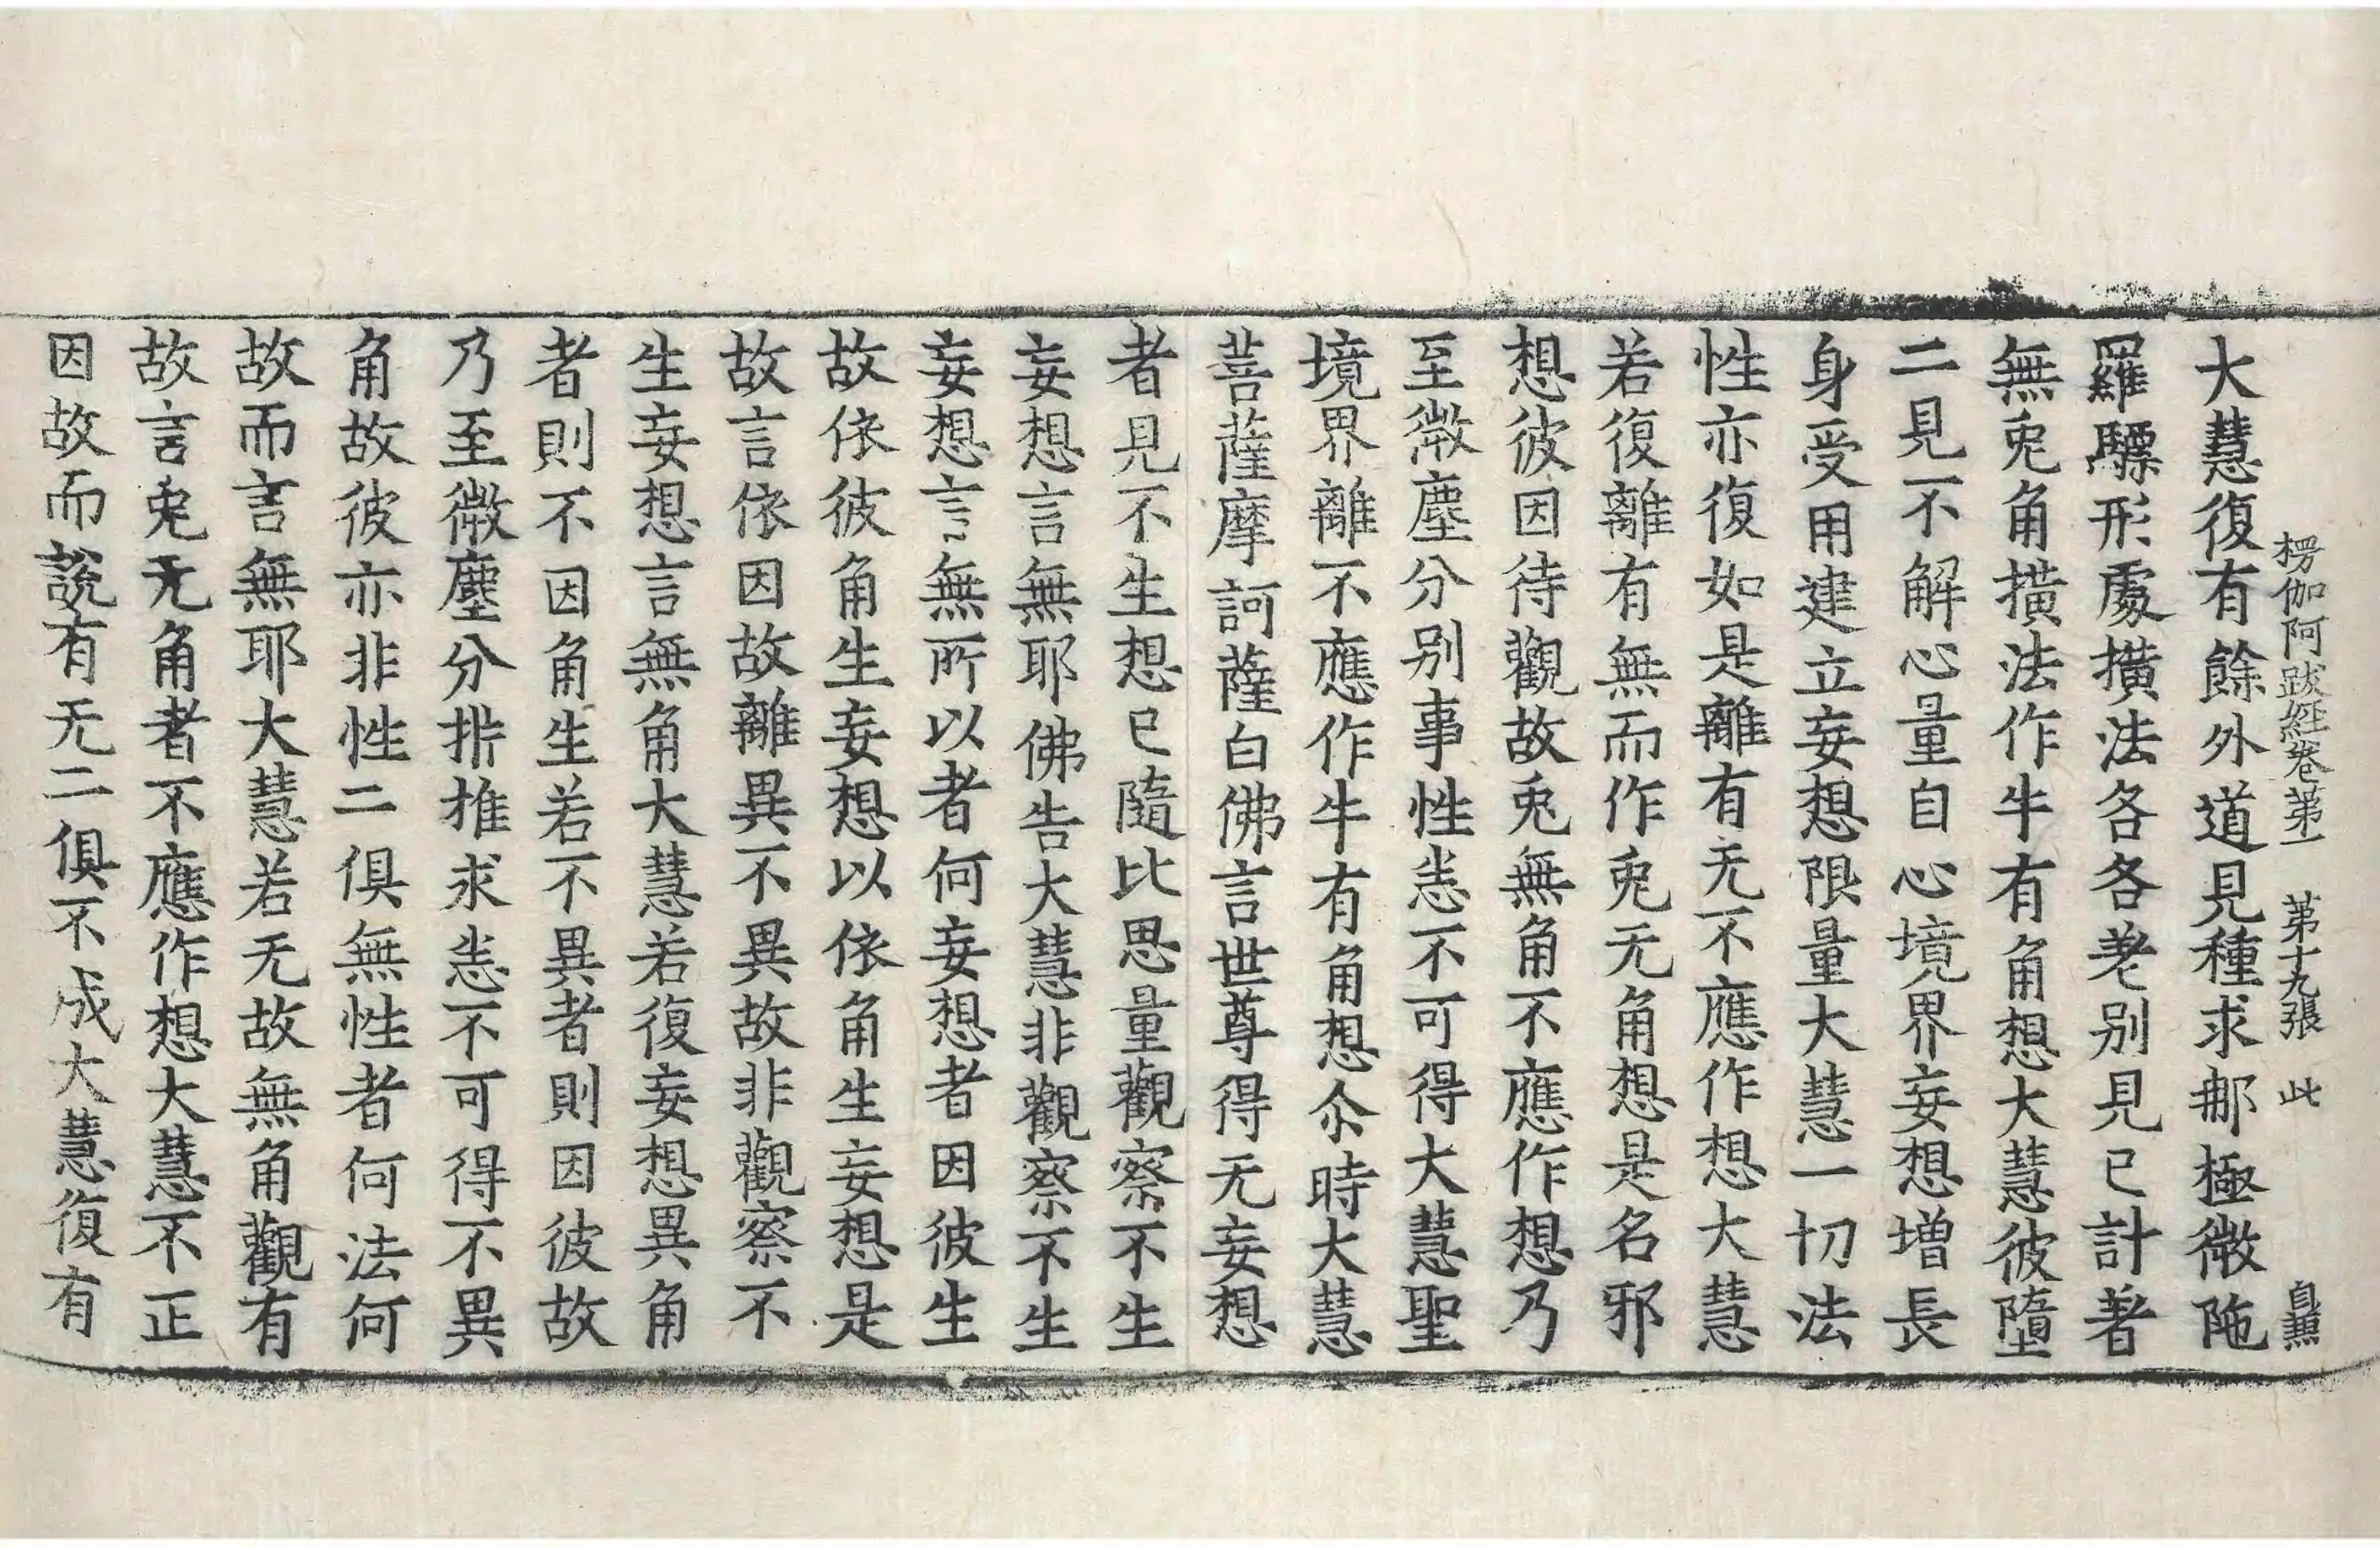 楞伽阿跋經卷第一　第十九張　此　自照
大慧復有餘外道見種求那極微陁
羅驃形處撗法各各差别見已計著
無兎角撗法作牛有角想大慧彼墮
二見不解心量自心境界妄想增長
身受用建立妄想限量大慧一切法
性亦復如是離有无不應作想大慧
若復離有無而作兎无角想是名邪
想彼因待觀故兎無角不應作想乃
至微塵分别事性悉不可得大慧聖
境界離不應作牛有角想尒時大慧
菩薩摩訶薩白佛言世尊得无妄想
者見不生想已隨比思量觀察不生
妄想言無耶佛告大慧非觀察不生
妄想言無所以者何妄想者因彼生
故依彼角生妄想以依角生妄想是
故言依因故離異不異故非觀察不
生妄想言無角大慧若復妄想異角
者則不因角生若不異者則因彼故
乃至微塵分㭊推求悉不可得不異
角故彼亦非性二俱無性者何法何
故而言無耶大慧若无故無角觀有
故言兎无角者不應作想大慧不正
因故而說有无二俱不成大慧復有